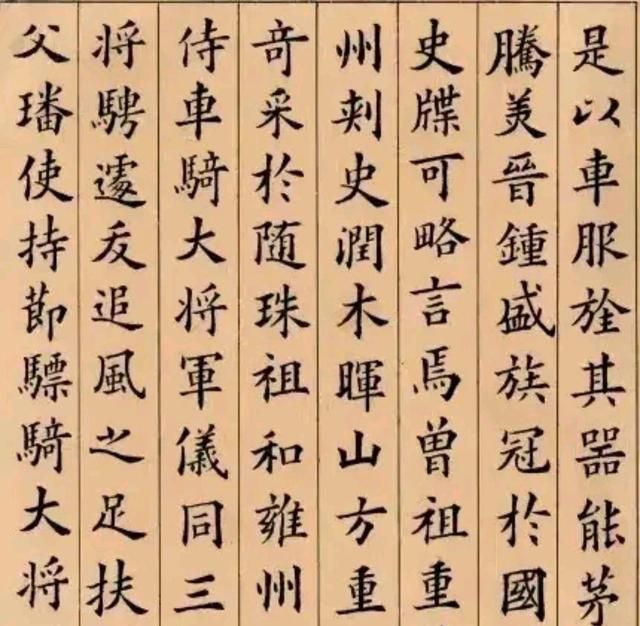 是以車服旌其噐能茅
騰美晉鍾盛族冠於國
史牒可略言焉曽祖重
州刾史潤木暉山方重
奇采於随珠祖和雍州
侍車騎大将軍儀同三
将騁遽夭追風之足扶
父璠使持節驃騎大将